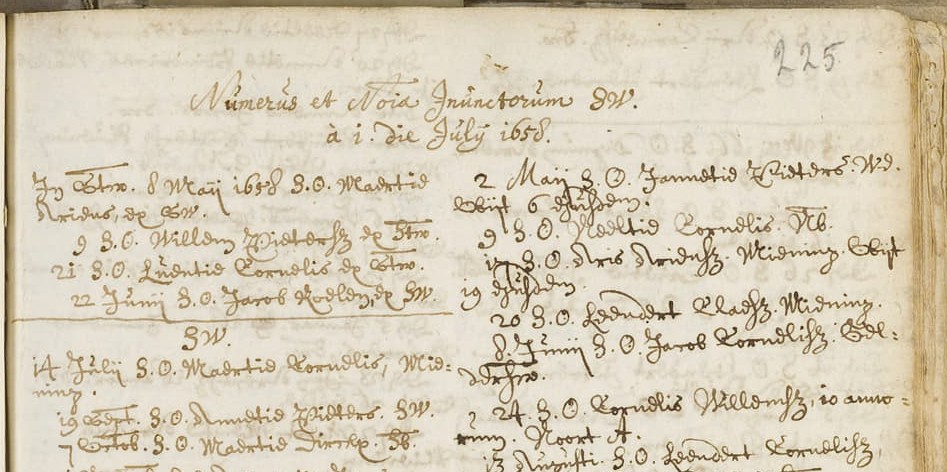 225
Numerus et Noĩa Inunctorum SW.
à 1. Die Julÿ 1658.
In Strw. 8 Maij 1658 S.O. Maertie
Ariens, ex SW.
9 S.O. Willem Pietersz ex Strw.
21 S.O. Luentie Cornelis ex Strw.
22 Junij S.O. Jacob Roelen, ex SW.
SW.
14 Julij S.O. Maertie Cornelis, Mie:
ning.
19 Sept. S.O. Annetie Pieters. SW.
7 Octob. S.O. Maertie Dircks. Sb.
2 Maij S.O. Jannetie Pieters. Wd.
Obijt 6 ejusdem.
9 S.O. Neeltie Cornelis. Nb.
S.O. Aris Ariensz. Miening. Obijt
19 ejusdem.
20 S.O. Leendert Claesz. Miening.
8 Junij S.O. Jacob Cornelisz. Gel:
24. S.O. Cornelis Willemsz, 10 anno:
rum. Noort A.
13 Augusti. S.O. Leendert Cornelisz,